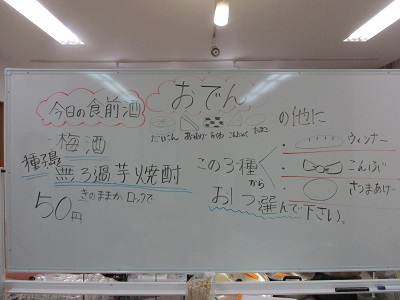 今日の食前酒
梅酒
種子島
無ろ過芋焼酎
きのままか ロックで
50円
おでん
だいこん あつあげ ちくわ こんにゃく たまご
の他に
この3種から
・ウィンナー
・こんぶ
・さつまあげ
お1つ選んで下さい。